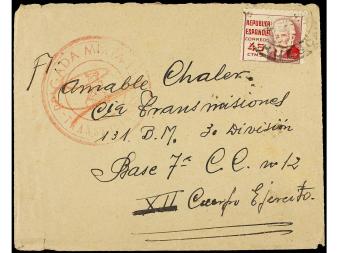 REPUBLICA
ESPAÑOLA
CORREOS
45
CTMS
BRIGADA MI
F/
Amable Chaler.
Cia Transmisiones
131 B.M. 3ª División
Base 7ª C.C. nº 2
XII Cuerpo Ejercito.